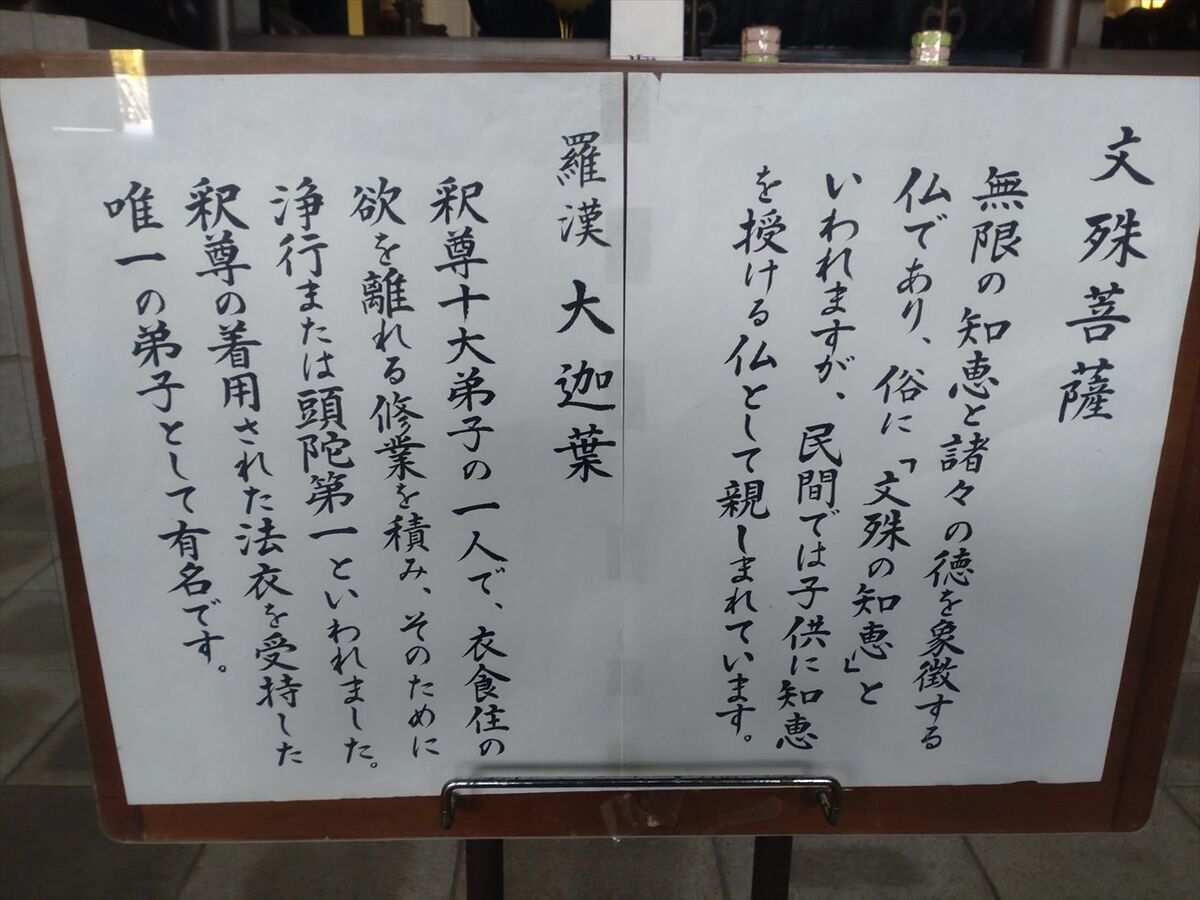 文殊菩薩
無限の知恵と諸々の徳を象徴する
仏であり、俗に「文殊の知恵」と
いわれますが、民間では子供に知恵
を授ける仏として親しまれています。
羅漢 大迦葉
釈尊十大弟子の一人で、衣食住の
欲を離れる修業を積み、そのために
浄行または頭陀第一といわれました。
釈尊の着用された法衣を受持した
唯一の弟子として有名です。